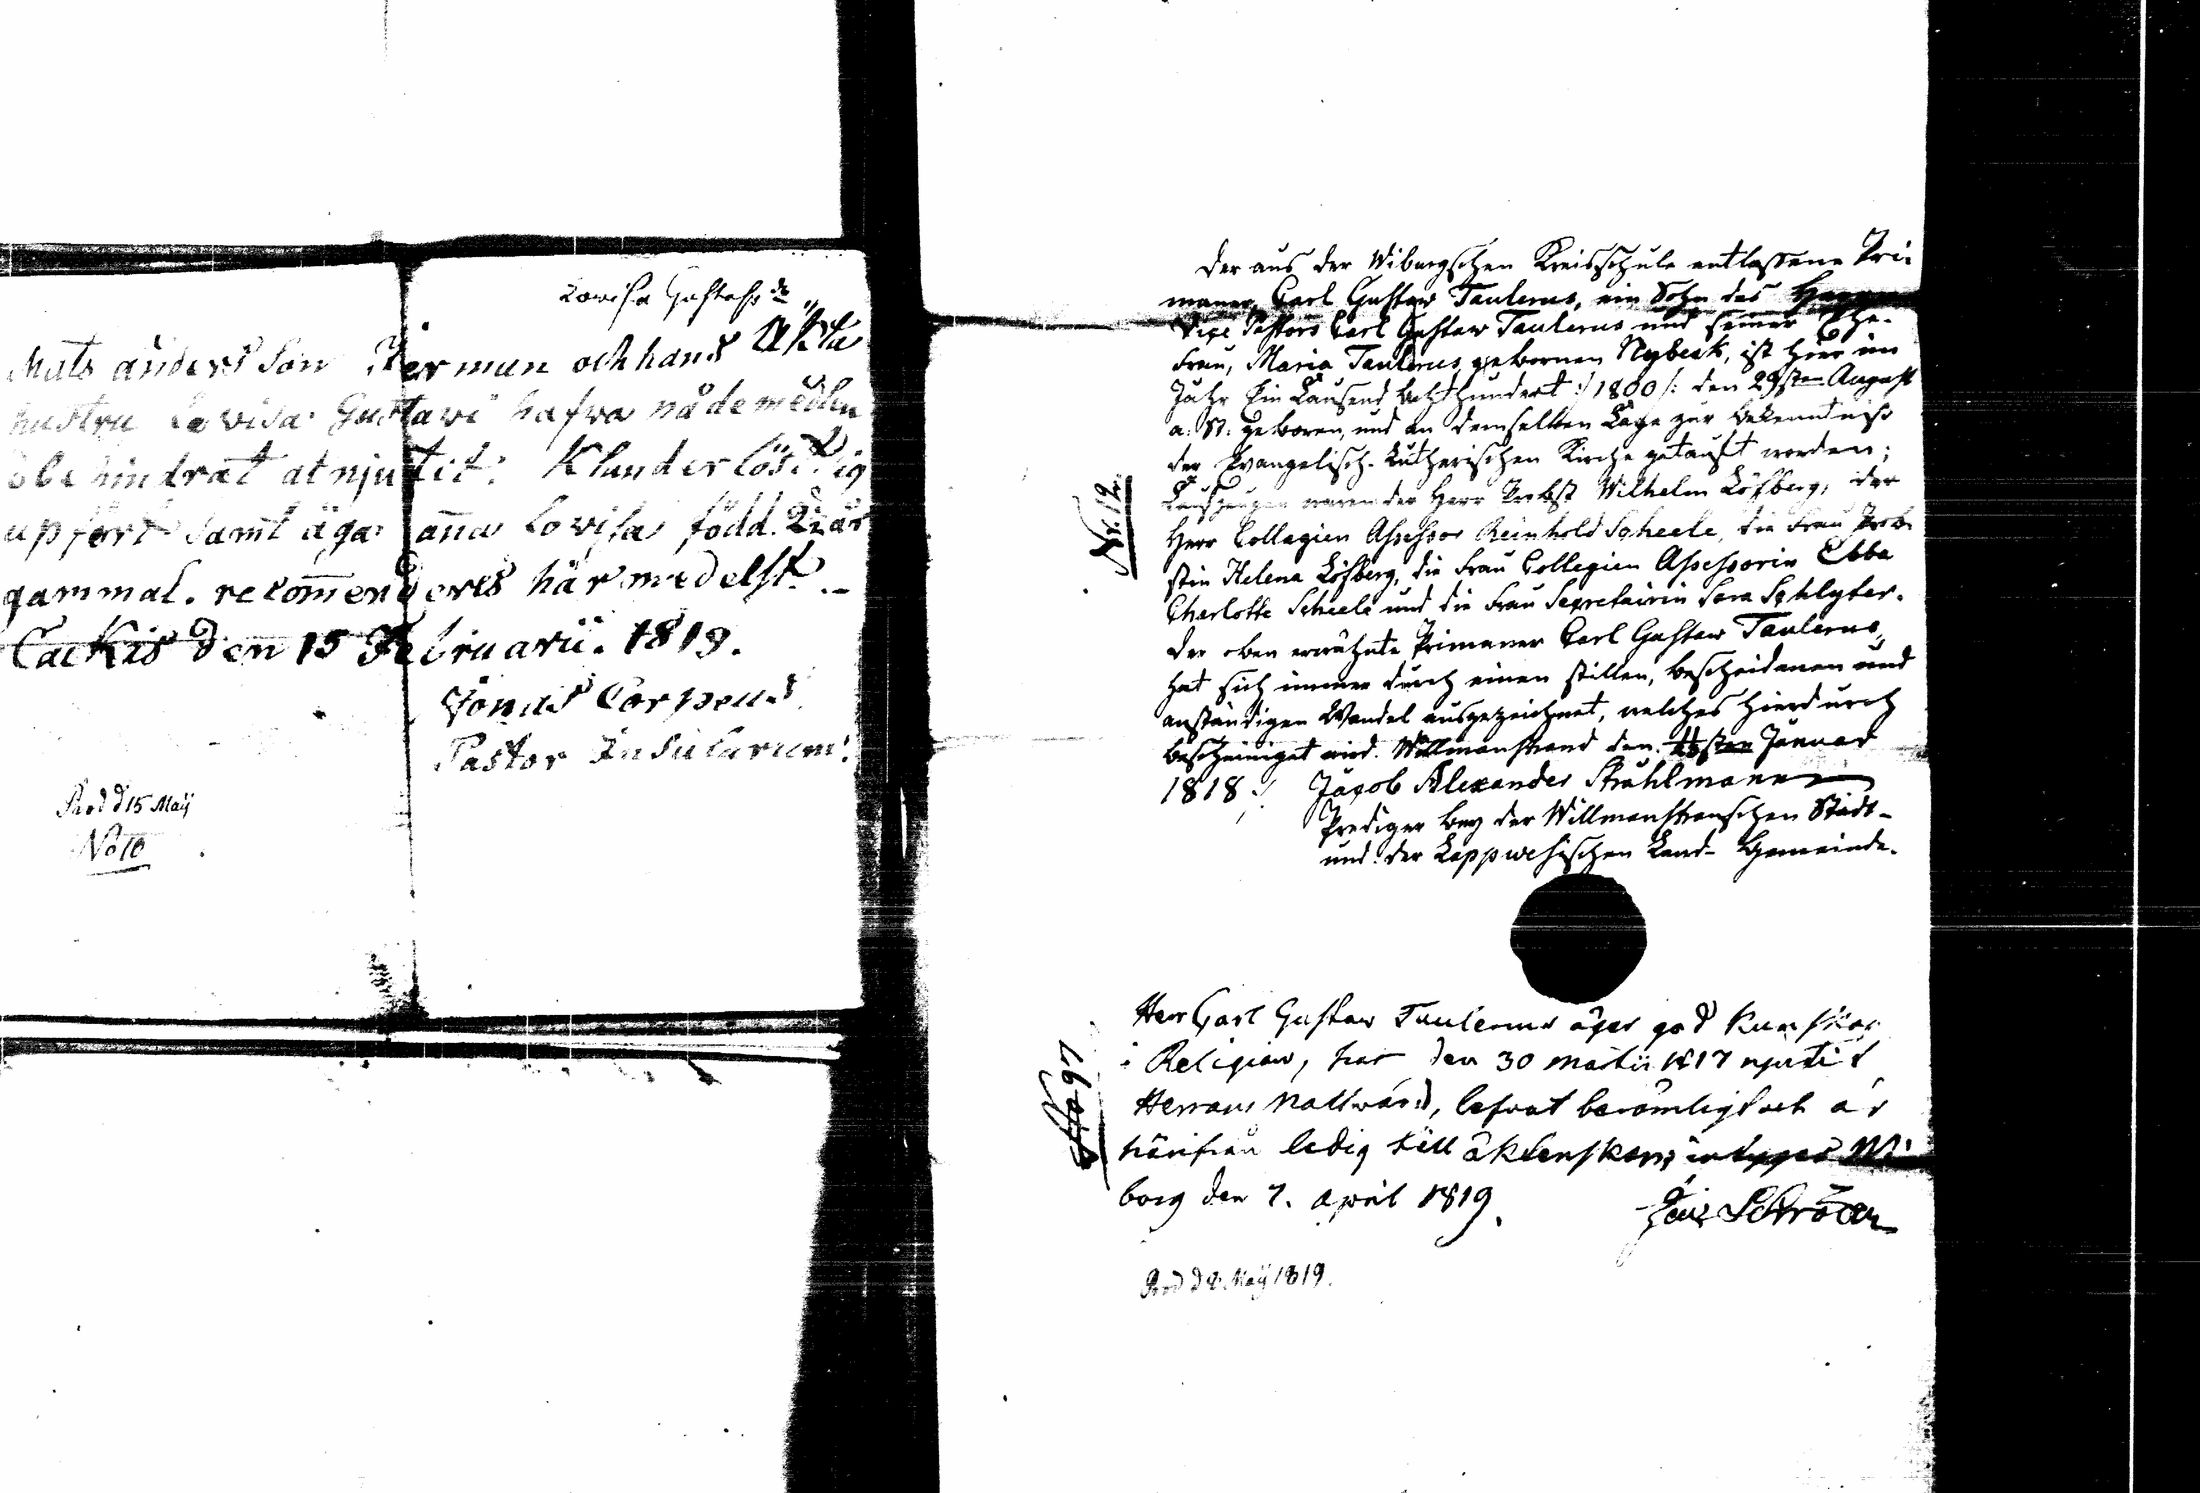 Lovisa Gustafs dr
Mats anders Son Perman och hans Äkta
hustru Lovisa Gustavi hafva nådemedlen
obehindrat atnjutit: Klanderlöst sig
upfört samt äga anna Lovisa född. 2 är
gammal. recom̄enderes här medelst.
Cackis den 15 Februarii. 1819.
Jonas Corpeus
Pastor Insularum:
Prod d 15 Maij
No 10
Nr. 12.
Der aus der Wiburgschen Kreisschule entlassene Pri-
maner, Carl Gustaw Taulerus, ein Sohn des Herrn
Vice Pastors Carl Gustaw Taulerus und seiner Ehe-
Frau, Maria Taulerus, gebornen Nybeck, ist hier im
Jahr Ein Tausend Achthundert :/ 1800 /: den 29sten August
a. St. geboren, und an demselben Tage zur Bekenntniss
der Evangelisch-Lutherischen Kirche getauft worden;
Taufzeugen waren der Herr Probst Wilhelm Löfberg, der
Herr Collegien Assessor Reinhold Scheele, die Frau Prob-
stin Helena Löfberg, die Frau Collegien Assessorin Ebba
Charlotte Scheele und die Frau Secretairin Sara Schlyter.
Der oben erwähnte Primaner Carl Gustaw Taulerus,
hat sich immer durch einen stillen, bescheidenen und
anständigen Wandel ausgezeichnet, welches hierdurch
bescheiniget wird. Willmanstrand den Januar
1818 :/ Jacob Alexander Strahlmann
Prediger bey der Willmanstrandschen Stadt-
und der Lappwesischen Land-Gemeinde.
No 97
Herr Carl Gustaw Taulerus äger god Kunskap
i Religion, har den 30 martii 1817 njutit
Herrans Nattvard, lefvat berömligt och är
härifrån ledig till äktenskap; intygas Wi-
borg den 7. april 1819.
Schröder
Prod d 8 Maij 1819.